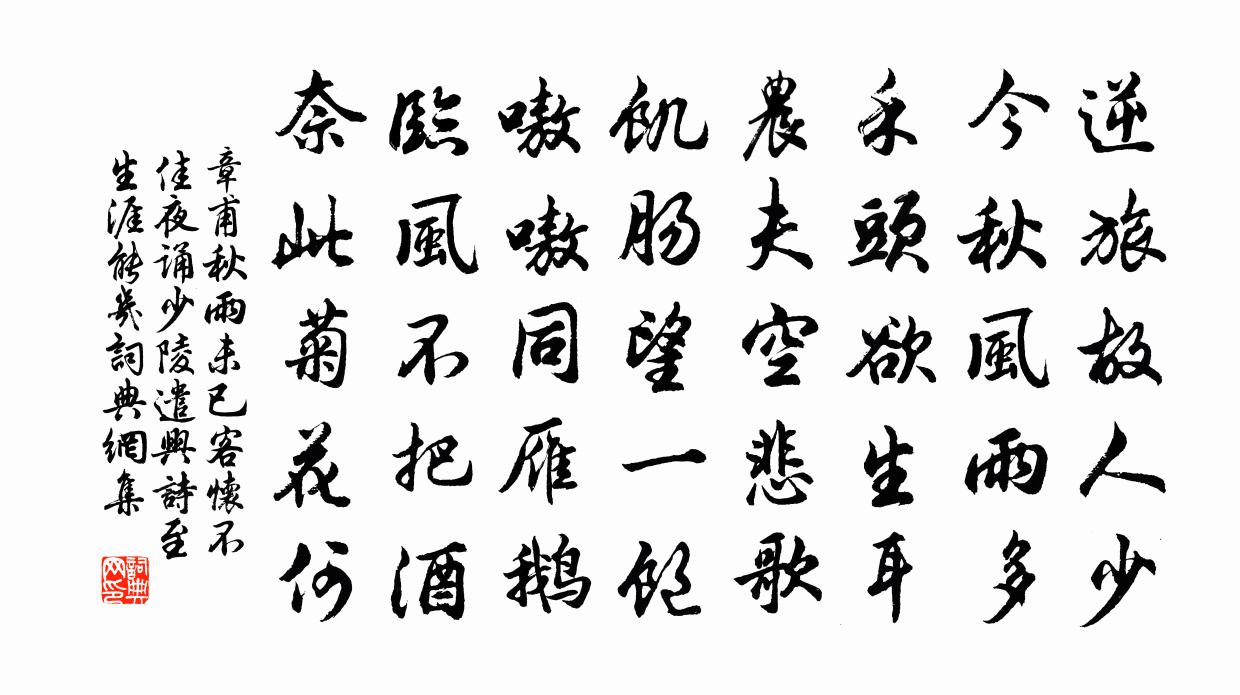 逆旅故人少
今秋風雨多
禾頭欲生耳
農夫空悲歌
飢肠望一飽
嗷嗷同雁鹅
臨風不把酒
奈此菊花何
章甫秋雨未已客懷不
佳夜誦少陵遣興詩至
生涯能幾詞典網集
詞典
网印